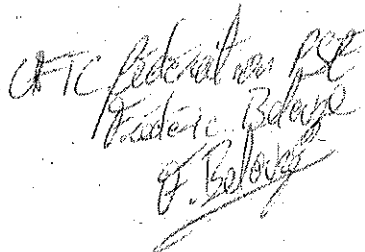 CFTC Fédération PSE
Frédéric Belouze
F. Belouze